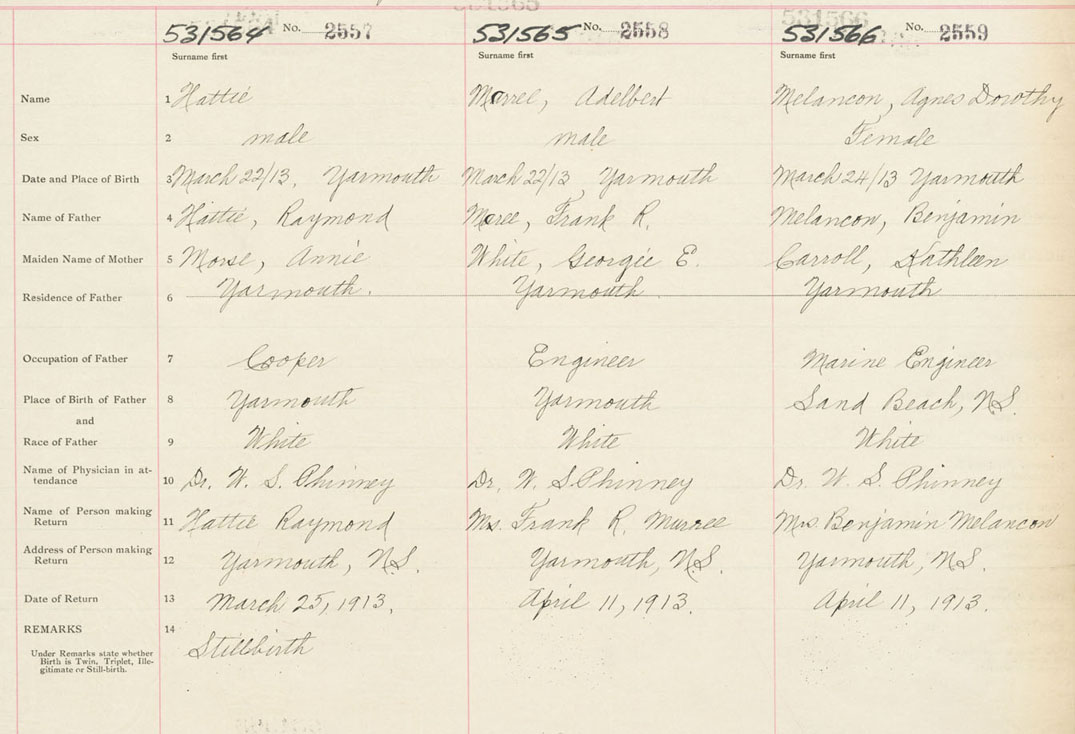 531564 No. 2557 531565 No. 2558 531566 No. 2559
Surname first Surname first Surname first
Name 1 Hattie Adelbert Melancon, Agnes Dorothy
Sex 2 male male Female
Date and Place of Birth 3 March 22/13, Yarmouth March 22/13 Yarmouth March 24/13 Yarmouth
Name of Father 4 Hattie, Raymond Frank R. Melancon, Benjamin
Maiden Name of Mother 5 Morse, Annie White, Georgie E. Carroll, Kathleen
Residence of Father 6 Yarmouth. Yarmouth. Yarmouth
Occupation of Father 7 Cooper Engineer Marine Engineer
Place of Birth of Father 8 Yarmouth Yarmouth Sand Beach, N.S.
and
Race of Father 9 White White White
Name of Physician in at-
tendance 10 Dr. W. S. Phinney Dr. W. S. Phinney Dr. W. S. Phinney
Name of Person making
Return 11 Hattie Raymond Mrs. Frank R. Murree Mrs. Benjamin Melancon
Address of Person making
Return 12 Yarmouth, N.S. Yarmouth, N.S. Yarmouth, N.S.
Date of Return 13 March 25, 1913. April 11, 1913. April 11, 1913.
REMARKS 14 Stillbirth
Under Remarks state whether
Birth is Twin, Triplet, Ille-
gitimate or Still-birth.